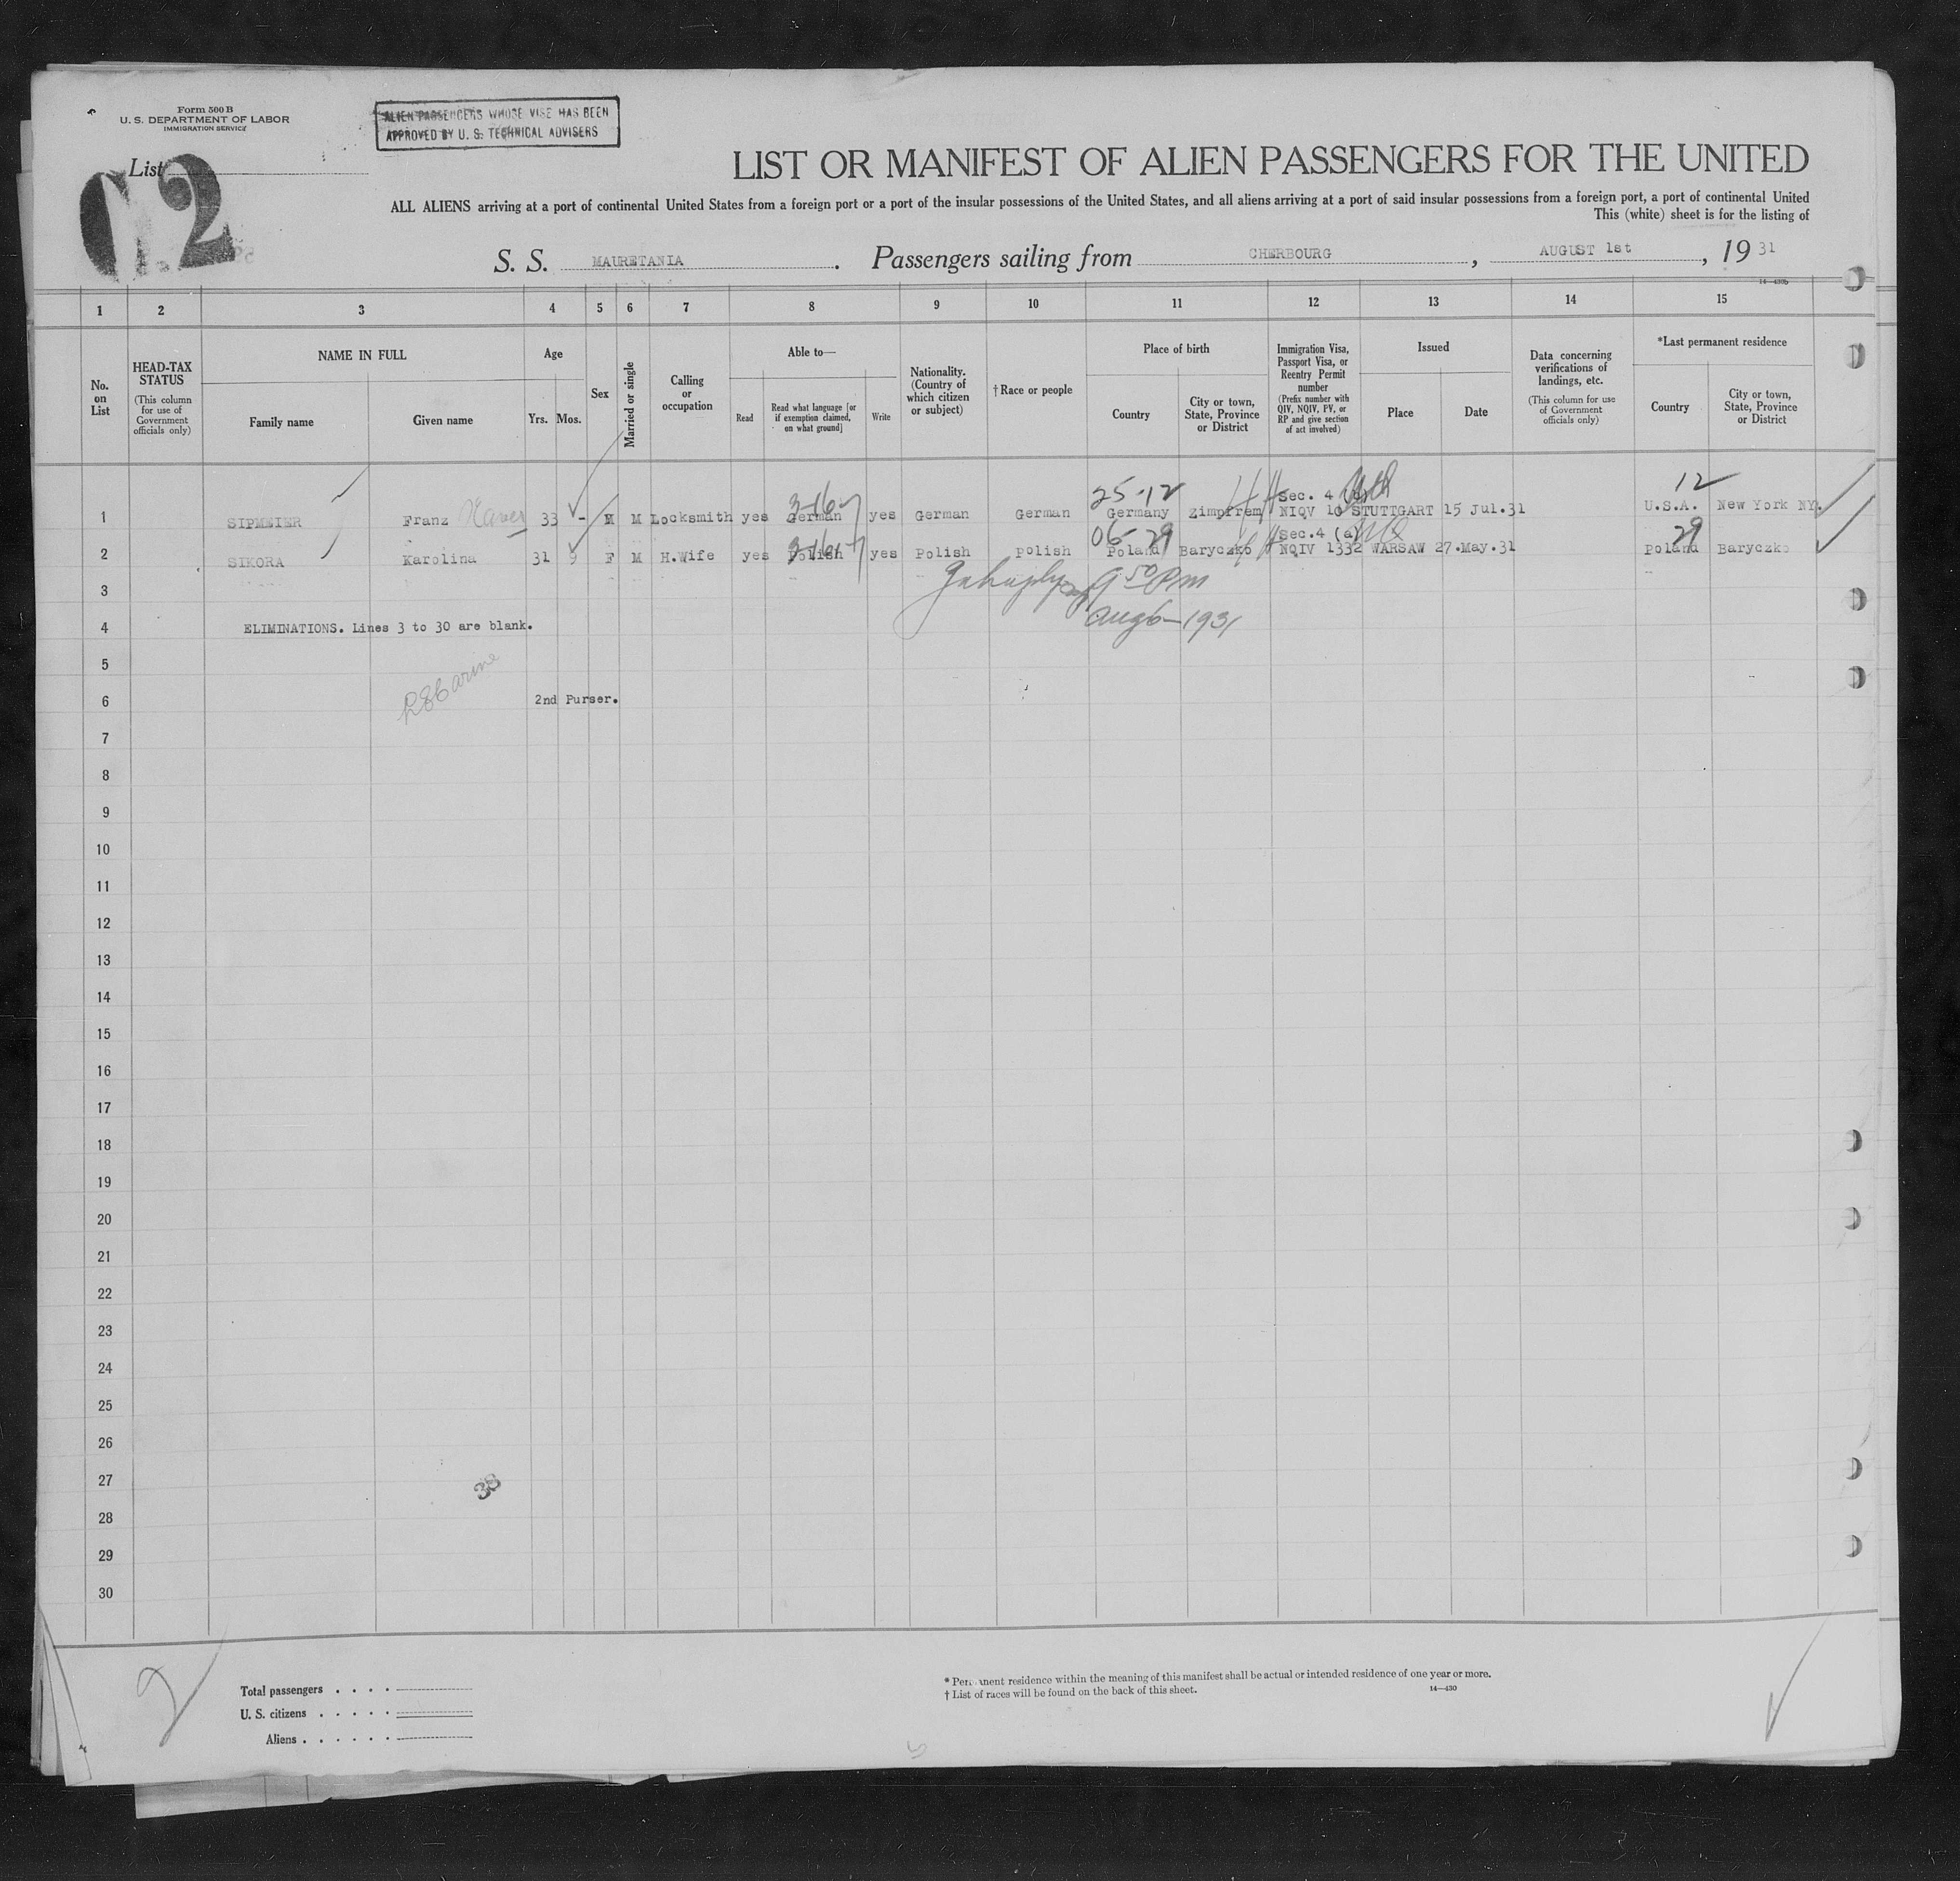 Form 500 B
U. S. DEPARTMENT OF LABOR
IMMIGRATION SERVICE
ALIEN PASSENGERS WHOSE VISE HAS BEEN
APPROVED BY U. S. TECHNICAL ADVISERS
List
2
LIST OR MANIFEST OF ALIEN PASSENGERS FOR THE UNITED
ALL ALIENS arriving at a port of continental United States from a foreign port or a port of the insular possessions of the United States, and all aliens arriving at a port of said insular possessions from a foreign port, a port of continental United
This (white) sheet is for the listing of
S. S. MAURETANIA. Passengers sailing from CHERBOURG, AUGUST 1st, 19 31
14—430b
1 2 3 4 5 6 7 8 9 10 11 12 13 14 15
No. on List
HEAD-TAX STATUS (This column for use of Government officials only)
NAME IN FULL
Family name Given name
Age
Yrs. Mos.
Sex
Married or single
Calling or occupation
Able to—
Read Read what language [or if exemption claimed, on what ground] Write
Nationality. (Country of which citizen or subject)
† Race or people
Place of birth
Country City or town, State, Province or District
Immigration Visa, Passport Visa, or Reentry Permit number (Prefix number with QIV, NQIV, PV, or RP and give section of act involved)
Issued
Place Date
Data concerning verifications of landings, etc. (This column for use of Government officials only)
*Last permanent residence
Country City or town, State, Province or District
25-12 Sec. 4 12
1 SIPMEIER Franz Xaver 33 - M M Locksmith yes German yes German German Germany Zimpfrem NIQV 10 STUTTGART 15 Jul.31 U.S.A. New York NY.
06-29 Sec.4 (a) 29
2 SIKORA Karolina 31 9 F M H.Wife yes Polish yes Polish Polish Poland Baryczko NQIV 1332 WARSAW 27.May.31 Poland Baryczko
3 9 50 PM
4 ELIMINATIONS. Lines 3 to 30 are blank. Aug 6-1931
5
6 2nd Purser.
7
8
9
10
11
12
13
14
15
16
17
18
19
20
21
22
23
24
25
26
27
38
28
29
30
2
Total passengers
U. S. citizens
Aliens
* Permanent residence within the meaning of this manifest shall be actual or intended residence of one year or more.
† List of races will be found on the back of this sheet.
14—430